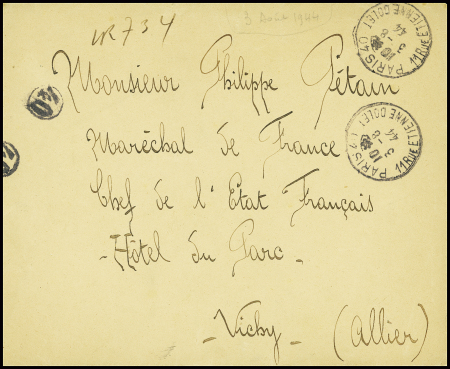 VR734
3 Août 1944
Monsieur Philippe Pétain
Maréchal de France
Chef de l'État Français
- Hôtel du Parc -
- Vichy - (Allier)
PARIS 11 RUE ETIENNE DOLET
3 -8 44
PARIS 11 RUE ETIENNE DOLET
3 -8 44